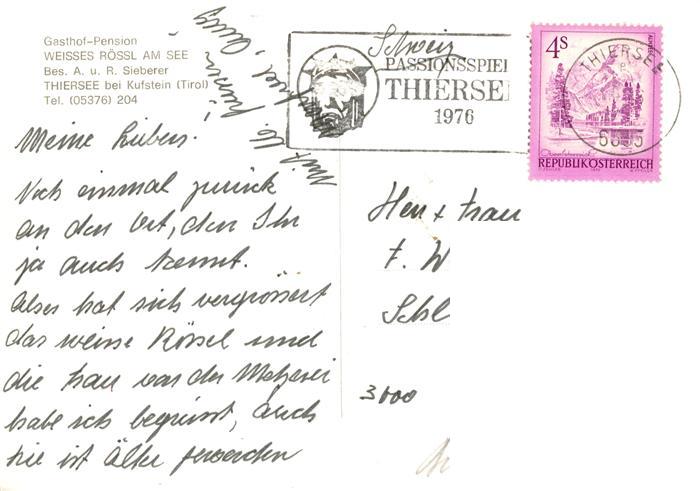 Gasthof-Pension
WEISSES RÖSSL AM SEE
Bes. A. u. R. Sieberer
THIERSEE bei Kufstein (Tirol)
Tel. (05376) 204
Meine Lieben!
Noch einmal zurück
an den Ort, den Ihr
ja auch kennt.
Alles hat sich vergrössert
das weisse Rössel und
die Frau von der Metzgerei
habe ich begrüsst, auch
sie ist älter geworden
Mit lb.
Schweiz
PASSIONSSPIEL
THIERSEE
1976
4S
THIERSEE
REPUBLIK ÖSTERREICH
Herr + Frau
F. W
Schl
3000